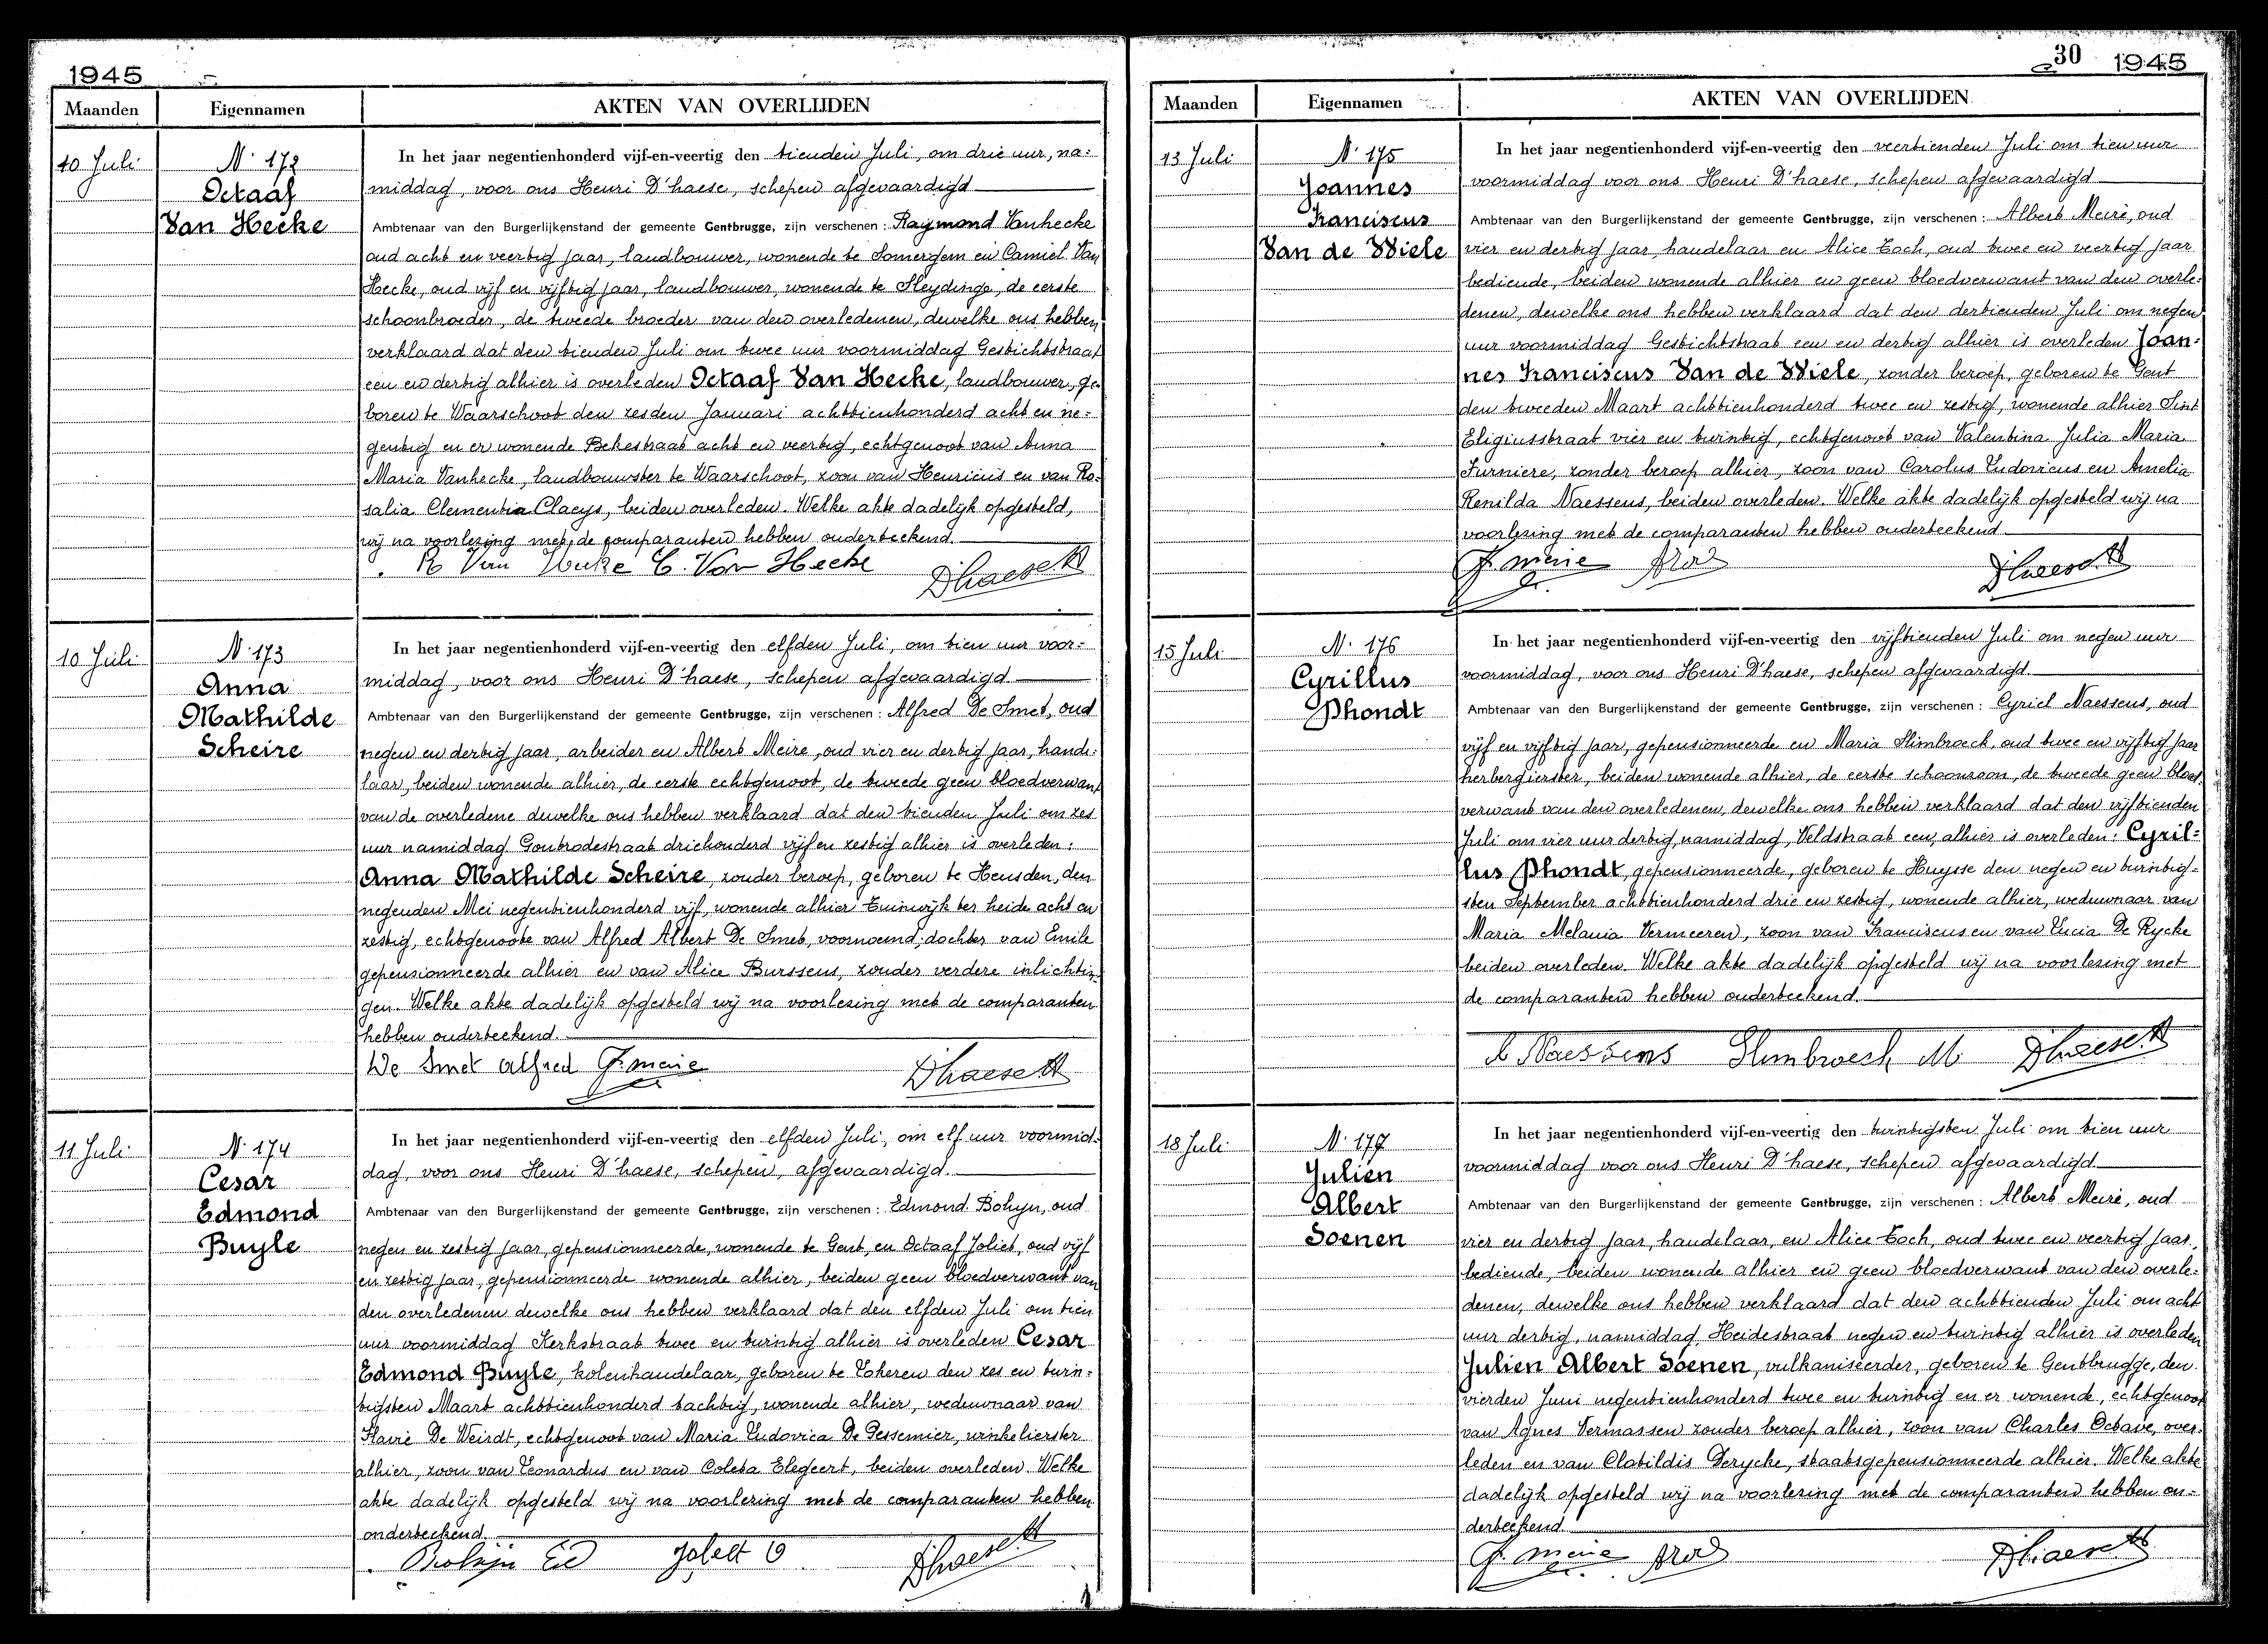 1945
Maanden
Eigennamen
AKTEN VAN OVERLIJDEN
10 Juli
N. 172
Octaaf
Van Hecke
In het jaar negentienhonderd vijf-en-veertig den tienden Juli, om drie uur, na-
middag, voor ons Henri D'haese, schepen afgevaardigd
Ambtenaar van den Burgerlijkenstand der gemeente Gentbrugge, zijn verschenen : Raymond Vanhecke
oud acht en veertig jaar, landbouwer, wonende te Somergem en Camiel Van
Hecke, oud vijf en vijftig jaar, landbouwer, wonende te Sleydinge, de eerste
schoonbroeder, de tweede broeder van den overledenen, dewelke ons hebben
verklaard dat den tienden Juli om twee uur voormiddag Gestichtstraat
een en dertig alhier is overleden Octaaf Van Hecke, landbouwer, ge-
boren te Waarschoot den zesden Januari achttienhonderd acht en ne-
gentig en er wonende Bekestraat acht en veertig, echtgenoot van Anna
Maria Vanhecke, landbouwster te Waarschoot, zoon van Henricus en van Ro-
salia Clementia Claeys, beiden overleden. Welke akte dadelijk opgesteld,
wij na voorlezing met de comparanten hebben onderteekend.
R Van Hecke C. Van Hecke D'haese H
10 Juli
N. 173
Anna
Mathilde
Scheire
In het jaar negentienhonderd vijf-en-veertig den elfden Juli, om tien uur voor-
middag, voor ons Henri D'haese, schepen afgevaardigd
Ambtenaar van den Burgerlijkenstand der gemeente Gentbrugge, zijn verschenen : Alfred De Smet, oud
negen en dertig jaar, arbeider en Albert Meire, oud vier en dertig jaar, hande-
laar, beiden wonende alhier, de eerste echtgenoot, de tweede geen bloedverwant
van de overledene dewelke ons hebben verklaard dat den tienden Juli om zes
uur namiddag Gontrodestraat driehonderd vijf en zestig alhier is overleden :
Anna Mathilde Scheire, zonder beroep, geboren te Heusden, den
negenden Mei negentienhonderd vijf, wonende alhier Tuinwijk ter heide acht en
zestig, echtgenoote van Alfred Albert De Smet, voornoemd, dochter van Emile
gepensionneerde alhier en van Alice Burssens, zonder verdere inlichtin-
gen. Welke akte dadelijk opgesteld wij na voorlezing met de comparanten
hebben onderteekend.
De Smet Alfred A. Meire D'haese H
11 Juli
N. 174
Cesar
Edmond
Buyle
In het jaar negentienhonderd vijf-en-veertig den elfden Juli, om elf uur voormid-
dag, voor ons Henri D'haese, schepen, afgevaardigd.
Ambtenaar van den Burgerlijkenstand der gemeente Gentbrugge, zijn verschenen : Edmond Bohyn, oud
negen en zestig jaar, gepensionneerde, wonende te Gent, en Octaaf Joliet, oud vijf
en zestig jaar, gepensionneerde wonende alhier, beiden geen bloedverwant van
den overledenen dewelke ons hebben verklaard dat den elfden Juli om tien
uur voormiddag Kerkstraat twee en twintig alhier is overleden Cesar
Edmond Buyle, kolenhandelaar, geboren te Lokeren den zes en twin-
tigsten Maart achttienhonderd tachtig, wonende alhier, weduwnaar van
Flavie De Weirdt, echtgenoot van Maria Ludovica De Pessemier, winkelierster
alhier, zoon van Leonardus en van Coleta Elegeert, beiden overleden. Welke
akte dadelijk opgesteld wij na voorlezing met de comparanten hebben
onderteekend.
Bohijn Ed D'haese H
30 1945
Maanden
Eigennamen
AKTEN VAN OVERLIJDEN
13 Juli
N. 175
Joannes
Franciscus
Van de Wiele
In het jaar negentienhonderd vijf-en-veertig den veertienden Juli om tien uur
voormiddag voor ons Henri D'haese, schepen afgevaardigd
Ambtenaar van den Burgerlijkenstand der gemeente Gentbrugge, zijn verschenen : Albert Meire, oud
vier en dertig jaar, handelaar en Alice Toch, oud twee en veertig jaar
bediende, beiden wonende alhier en geen bloedverwant van den overle-
denen, dewelke ons hebben verklaard dat den dertienden Juli om negen
uur voormiddag Gestichtstraat een en dertig alhier is overleden Joan-
nes Franciscus Van de Wiele, zonder beroep, geboren te Gent
den tweeden Maart achttienhonderd twee en zestig, wonende alhier Sint
Eligiusstraat vier en twintig, echtgenoot van Valentina Julia Maria
Furniere, zonder beroep alhier, zoon van Carolus Ludovicus en Amelia
Renilda Naessens, beiden overleden. Welke akte dadelijk opgesteld wij na
voorlezing met de comparanten hebben onderteekend
A. Meire D'haese H
15 Juli
N. 176
Cyrillus
Dhondt
In het jaar negentienhonderd vijf-en-veertig den vijftienden Juli om negen uur
voormiddag, voor ons Henri D'haese, schepen afgevaardigd.
Ambtenaar van den Burgerlijkenstand der gemeente Gentbrugge, zijn verschenen : Cyriel Naessens, oud
vijf en vijftig jaar, gepensionneerde en Maria Slimbroeck, oud twee en vijftig jaar
herbergierster, beiden wonende alhier, de eerste schoonzoon, de tweede geen bloed
verwant van den overledenen, dewelke ons hebben verklaard dat den vijftienden
Juli om vier uur dertig, namiddag, Veldstraat een, alhier is overleden : Cyril-
lus Dhondt, gepensionneerde, geboren te Huysse den negen en twintig-
sten September achttienhonderd drie en zestig, wonende alhier, weduwnaar van
Maria Melania Vermeeren, zoon van Franciscus en van Lucia De Rycke
beiden overleden. Welke akte dadelijk opgesteld wij na voorlezing met
de comparanten hebben onderteekend.
Naessens Slimbroeck M D'haese H
18 Juli
N. 177
Julien
Albert
Soenen
In het jaar negentienhonderd vijf-en-veertig den twintigsten Juli om tien uur
voormiddag voor ons Henri D'haese, schepen afgevaardigd
Ambtenaar van den Burgerlijkenstand der gemeente Gentbrugge, zijn verschenen : Albert Meire, oud
vier en dertig jaar, handelaar, en Alice Toch, oud twee en veertig jaar,
bediende, beiden wonende alhier en geen bloedverwant van den overle-
denen, dewelke ons hebben verklaard dat den achttienden Juli om acht
uur dertig, namiddag, Heidestraat negen en twintig alhier is overleden
Julien Albert Soenen, vulkaniseerder, geboren te Gentbrugge, den
vierden Juni negentienhonderd twee en twintig en er wonende, echtgenoot
van Agnes Vermassen zonder beroep alhier, zoon van Charles Octave, over-
leden en van Clotildis Derycke, staatsgepensionneerde alhier. Welke akte
dadelijk opgesteld wij na voorlezing met de comparanten hebben on-
derteekend.
A. Meire D'haese H